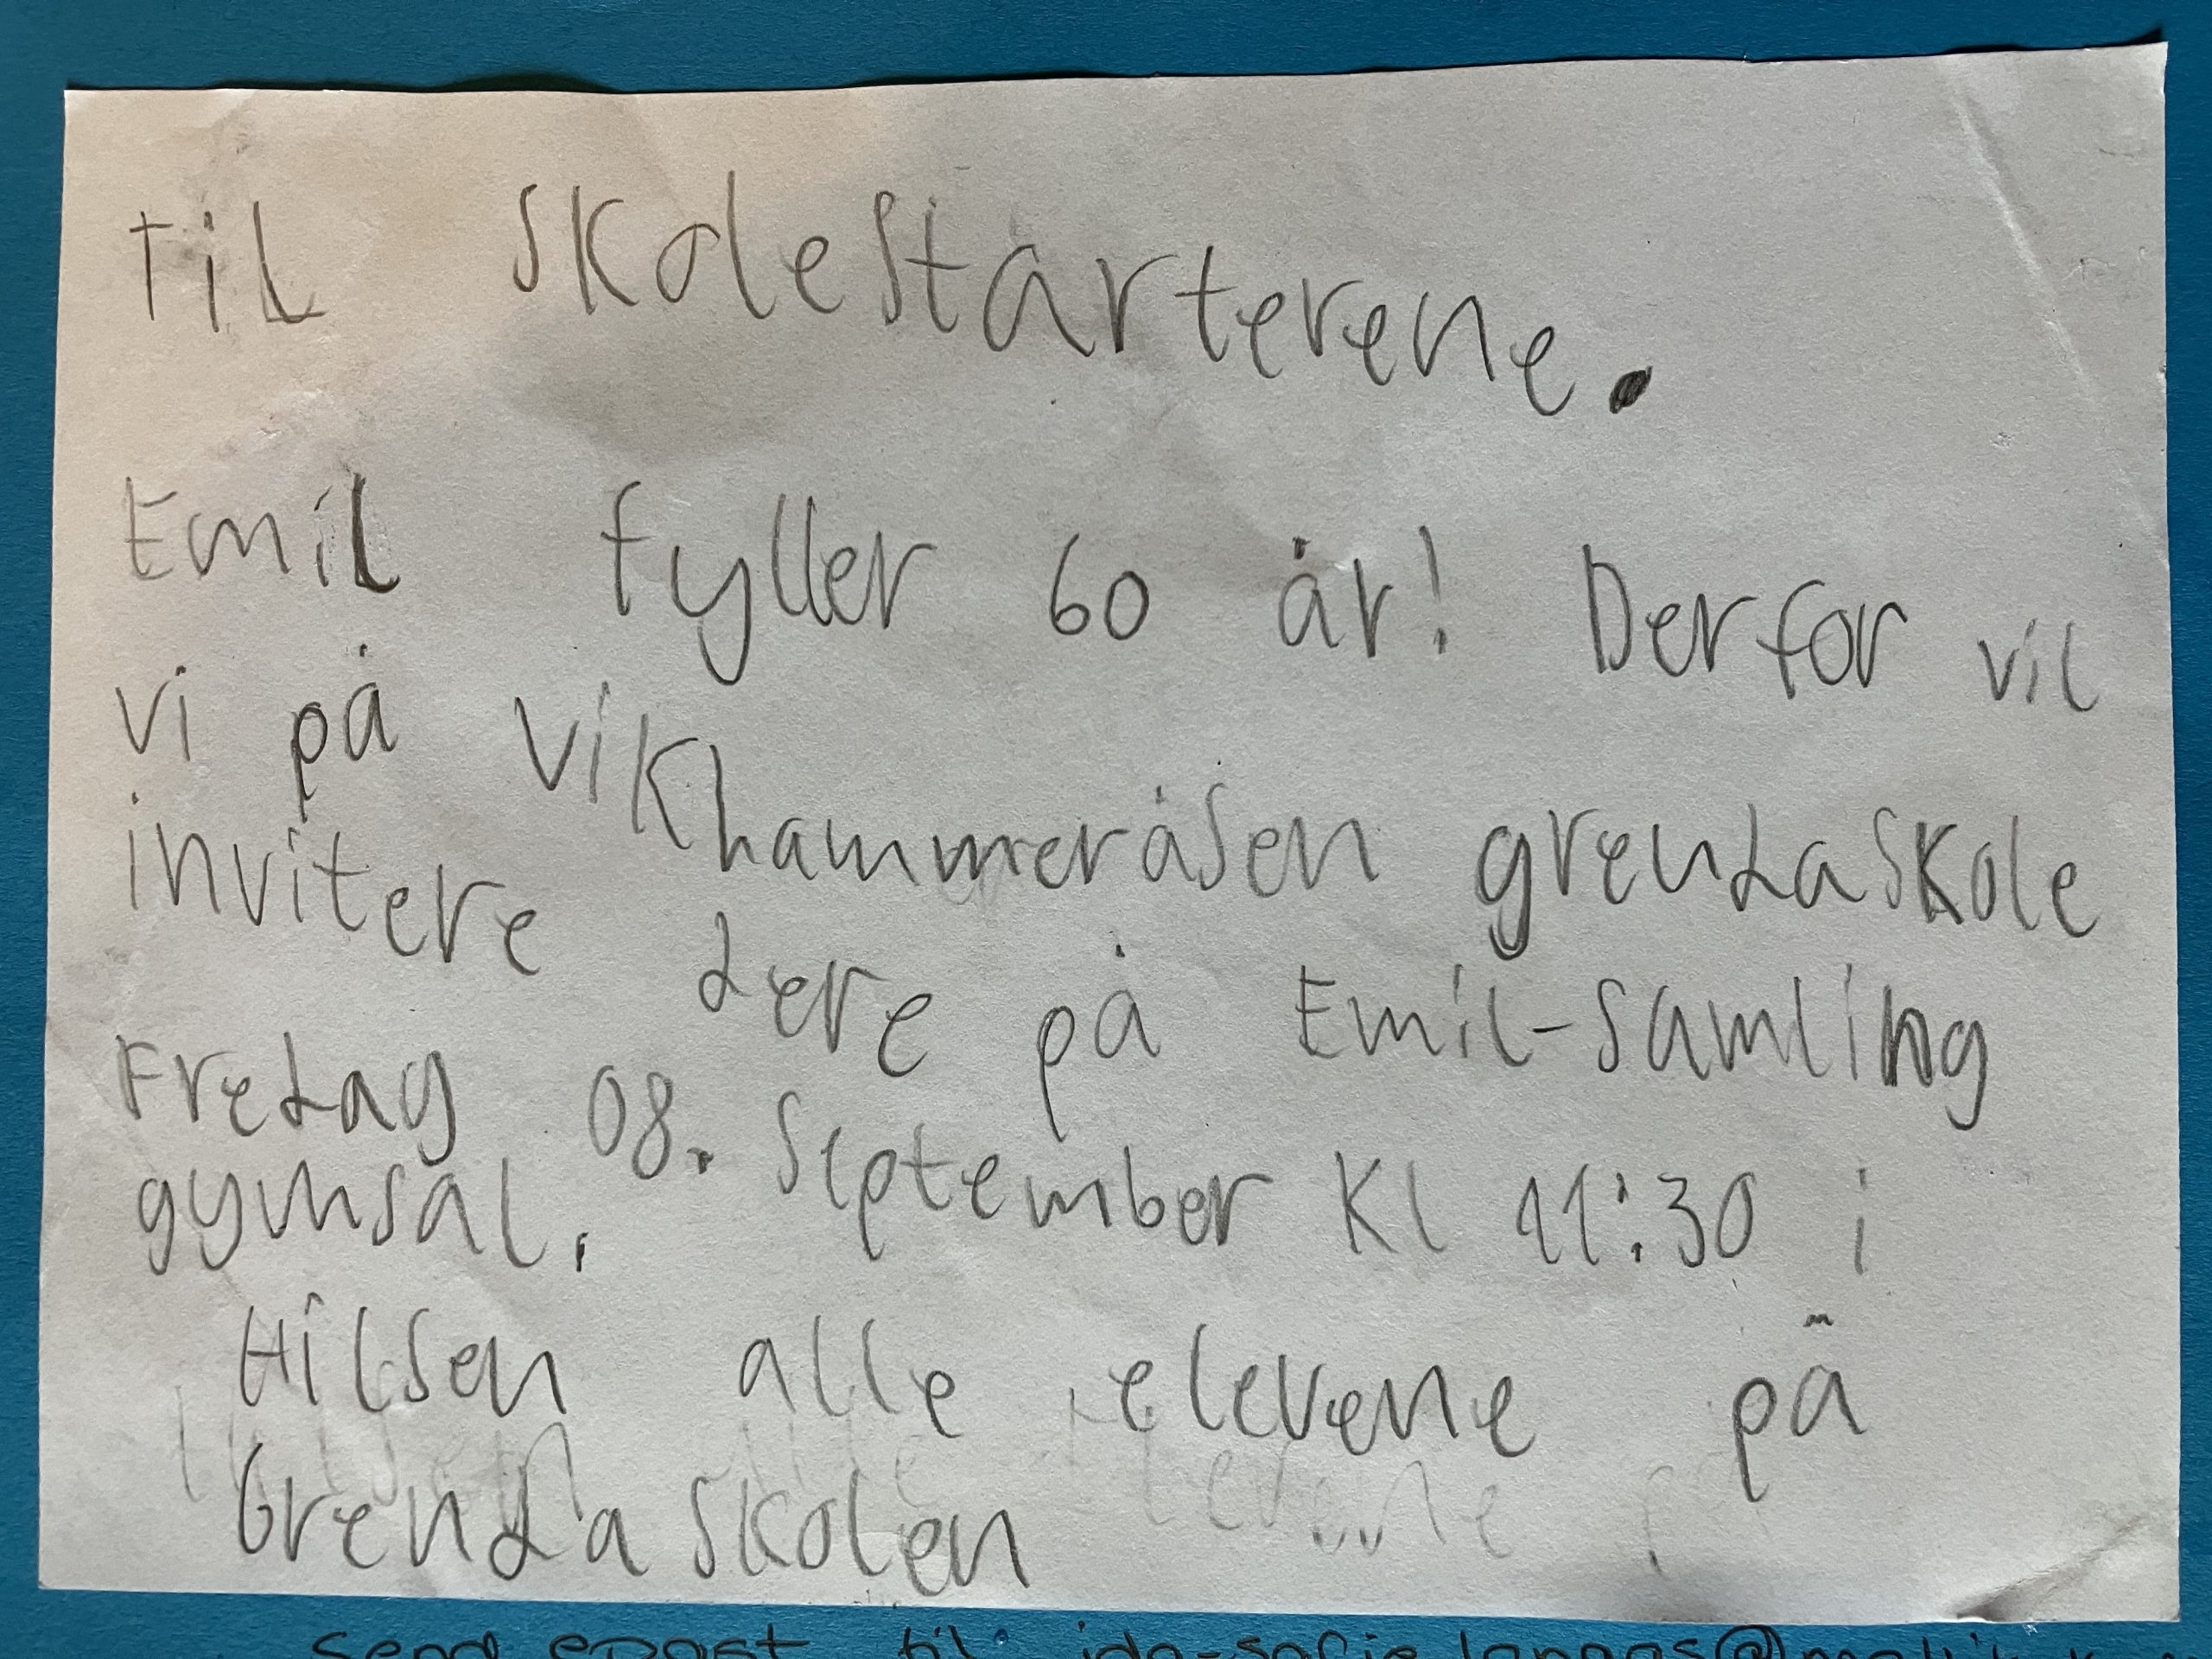 Til skolestarterene.
Emil fyller 60 år! Derfor vil
vi på Vikhammeråsen grendaskole
invitere dere på Emil-samling
Fredag 08. September Kl 11:30 i
gymsal.
Hilsen alle elevene på
Grendaskolen
Send epost til: